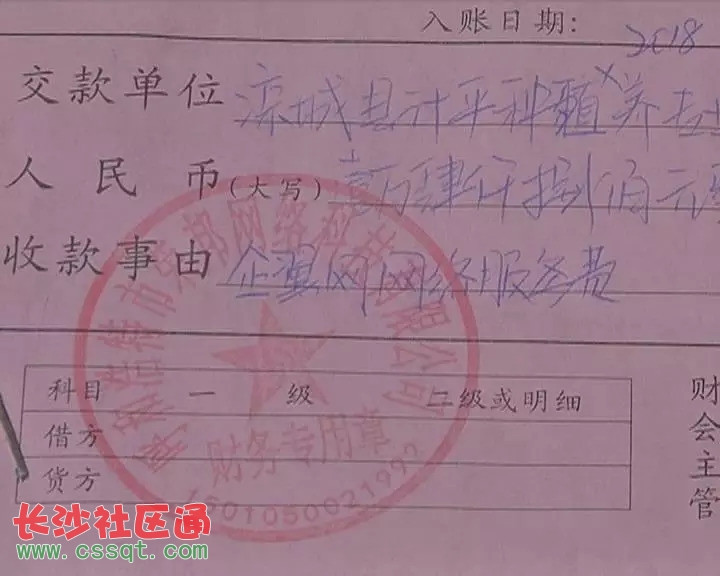 入账日期: 2018
交款单位 滦城县计平种植养
人民币(大写) 壹万肆仟捌佰元
收款事由 企翼网网络服务费
呼和浩特市 邦网络科技有限公司
财务专用章
1501050021997
科目 一级 二级或明细
借方
货方
财会主管
长沙社区通
www.cssqt.com